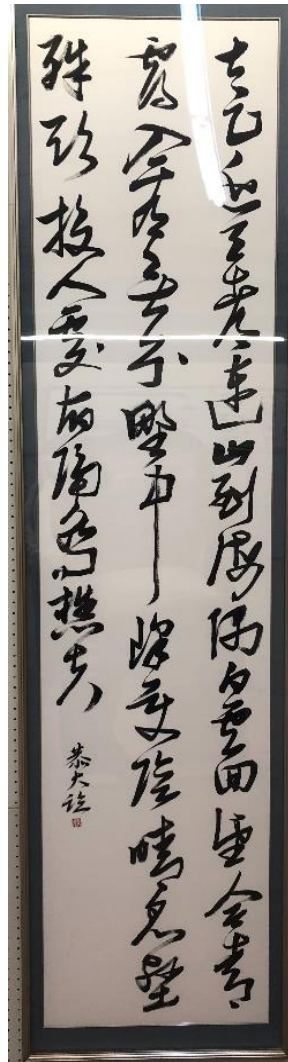 太乙近天都連山到海隅白雲回望合青
靄入看無分野中峰變陰晴衆壑
殊欲投人處宿隔水問樵夫
恭大